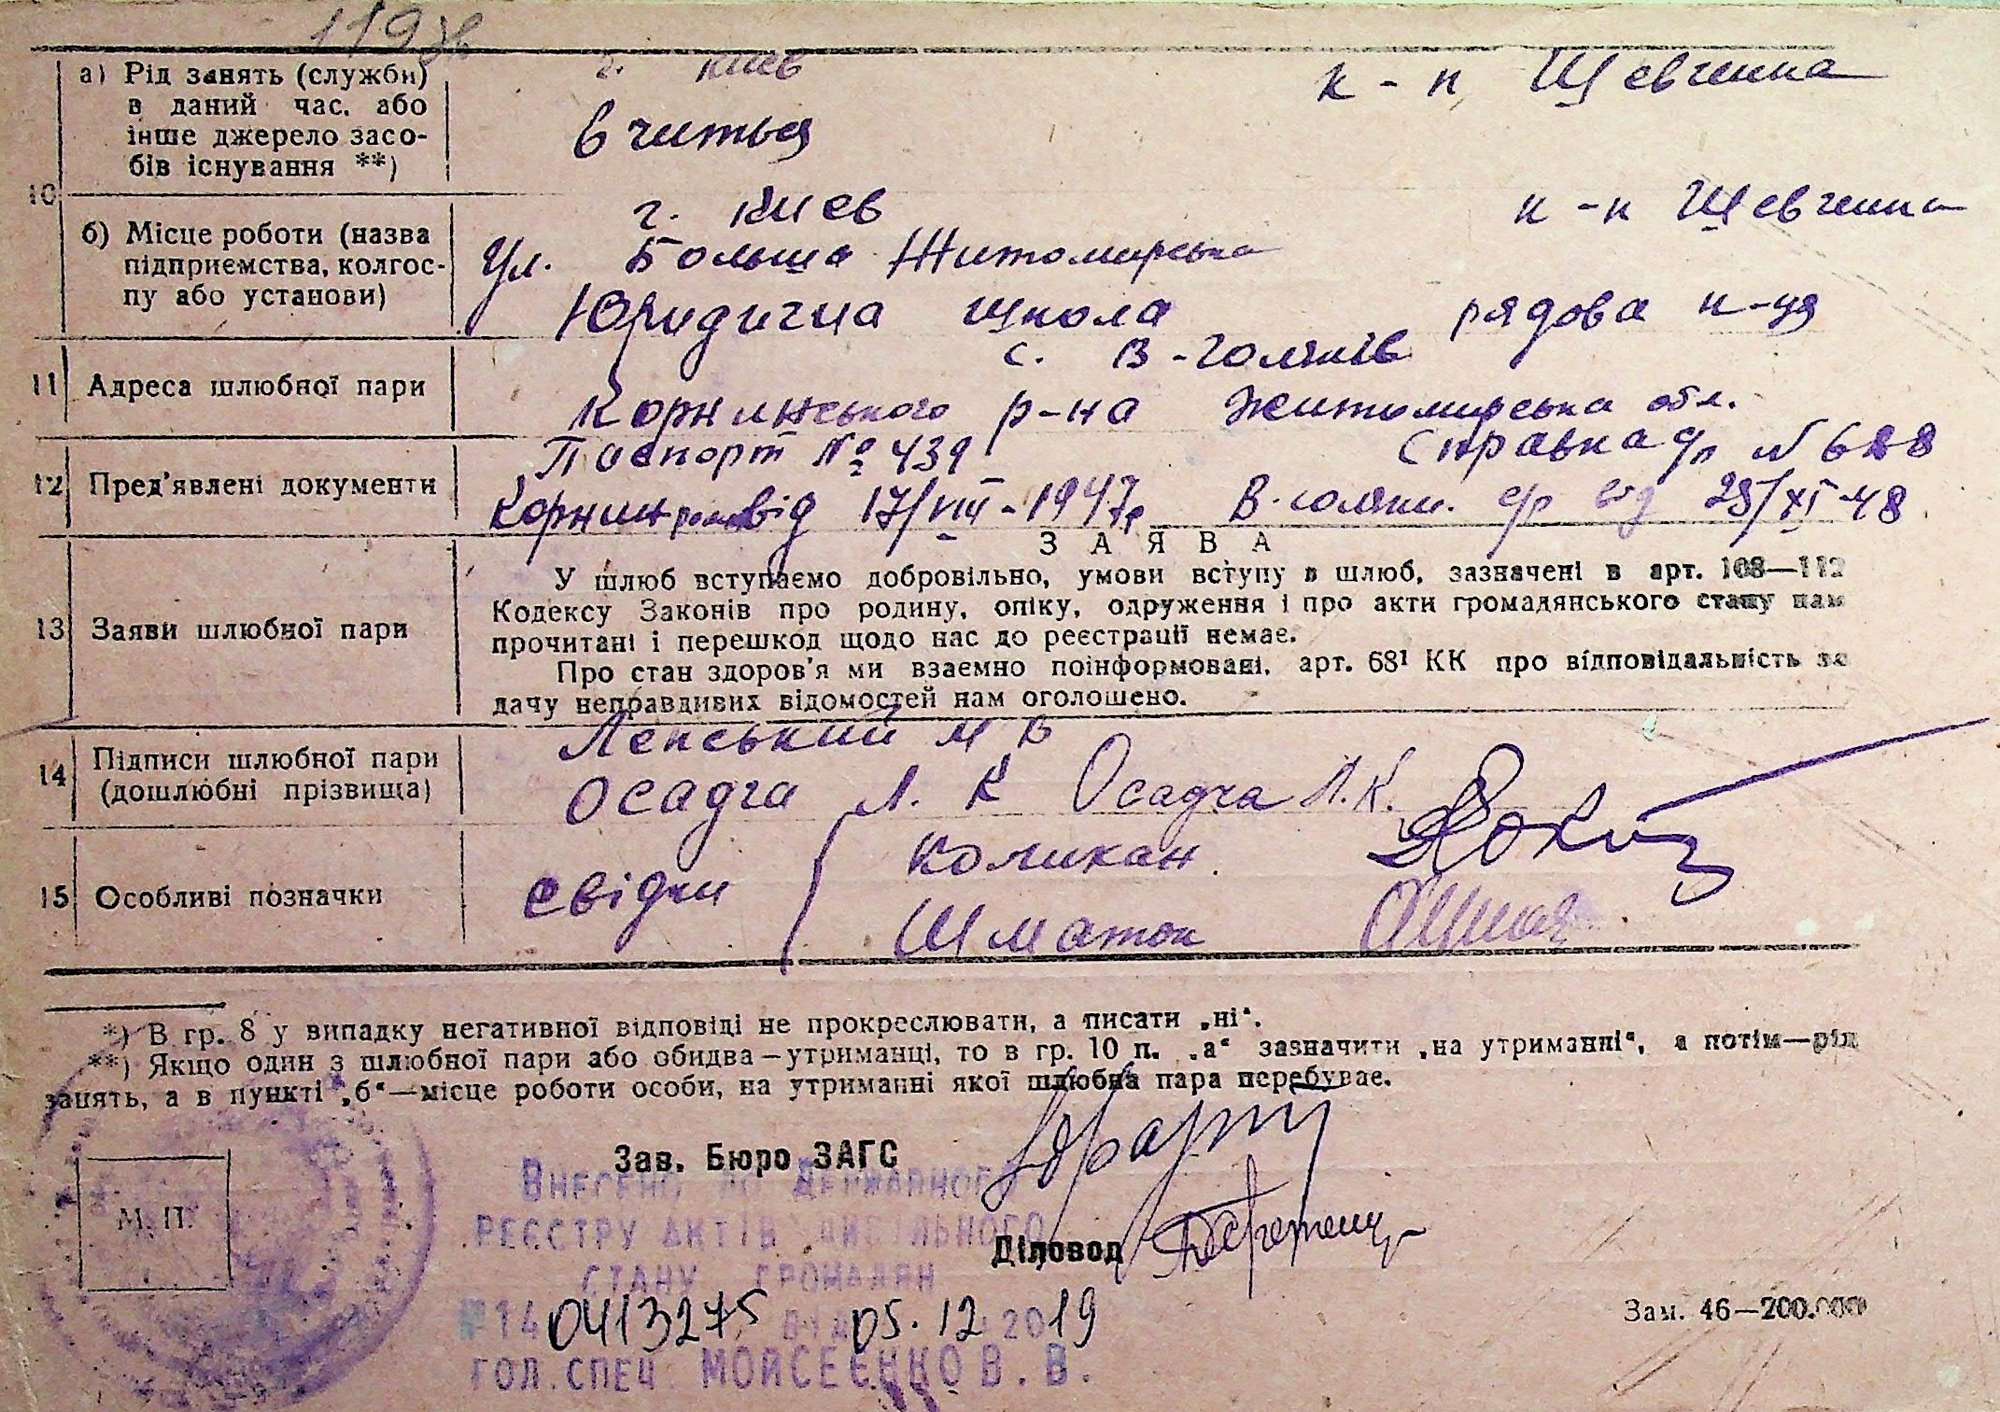 119
а) Рід занять (служби) в даний час, або інше джерело засобів існування **)
г. Киев к-п Шевченка
вчиться
10
б) Місце роботи (назва підприємства, колгоспу або установи)
г. Киев к-п Шевченка
Ул. Больша Житомирська
Юридична школа рядова к-ця
11 Адреса шлюбної пари
с. В-Голяків
Корнинського р-на Житомирська обл.
12 Пред'явлені документи
Паспорт № 439 Справка № 688
Корнин від 17/VIII-1947р В. голяки. с/р від 25/XI-48
ЗАЯВА
13 Заяви шлюбної пари
У шлюб вступаємо добровільно, умови вступу в шлюб, зазначені в арт. 108—112
Кодексу Законів про родину, опіку, одруження і про акти громадянського стану нам
прочитані і перешкод щодо нас до реєстрації немає.
Про стан здоров'я ми взаємно поінформовані, арт. 68¹ КК про відповідальність за
дачу неправдивих відомостей нам оголошено.
14 Підписи шлюбної пари (дошлюбні прізвища)
Лепський М В
Осадча Л. К Осадча Л.К.
15 Особливі позначки
свідки { Коликан
Шматок
*) В гр. 8 у випадку негативної відповіді не прокреслювати, а писати „ні“.
**) Якщо один з шлюбної пари або обидва—утриманці, то в гр. 10 п. „а“ зазначити „на утриманні“, а потім—рід
занять, а в пункті „б“—місце роботи особи, на утриманні якої шлюбна пара перебуває.
Зав. Бюро ЗАГС
М. П.
Внесено до Державного
реєстру актів цивільного
Діловод
стану громадян
№ 14 0413275 від 05.12 2019
гол. спец. Мойсеєнко В. В.
Зам. 46—200.000